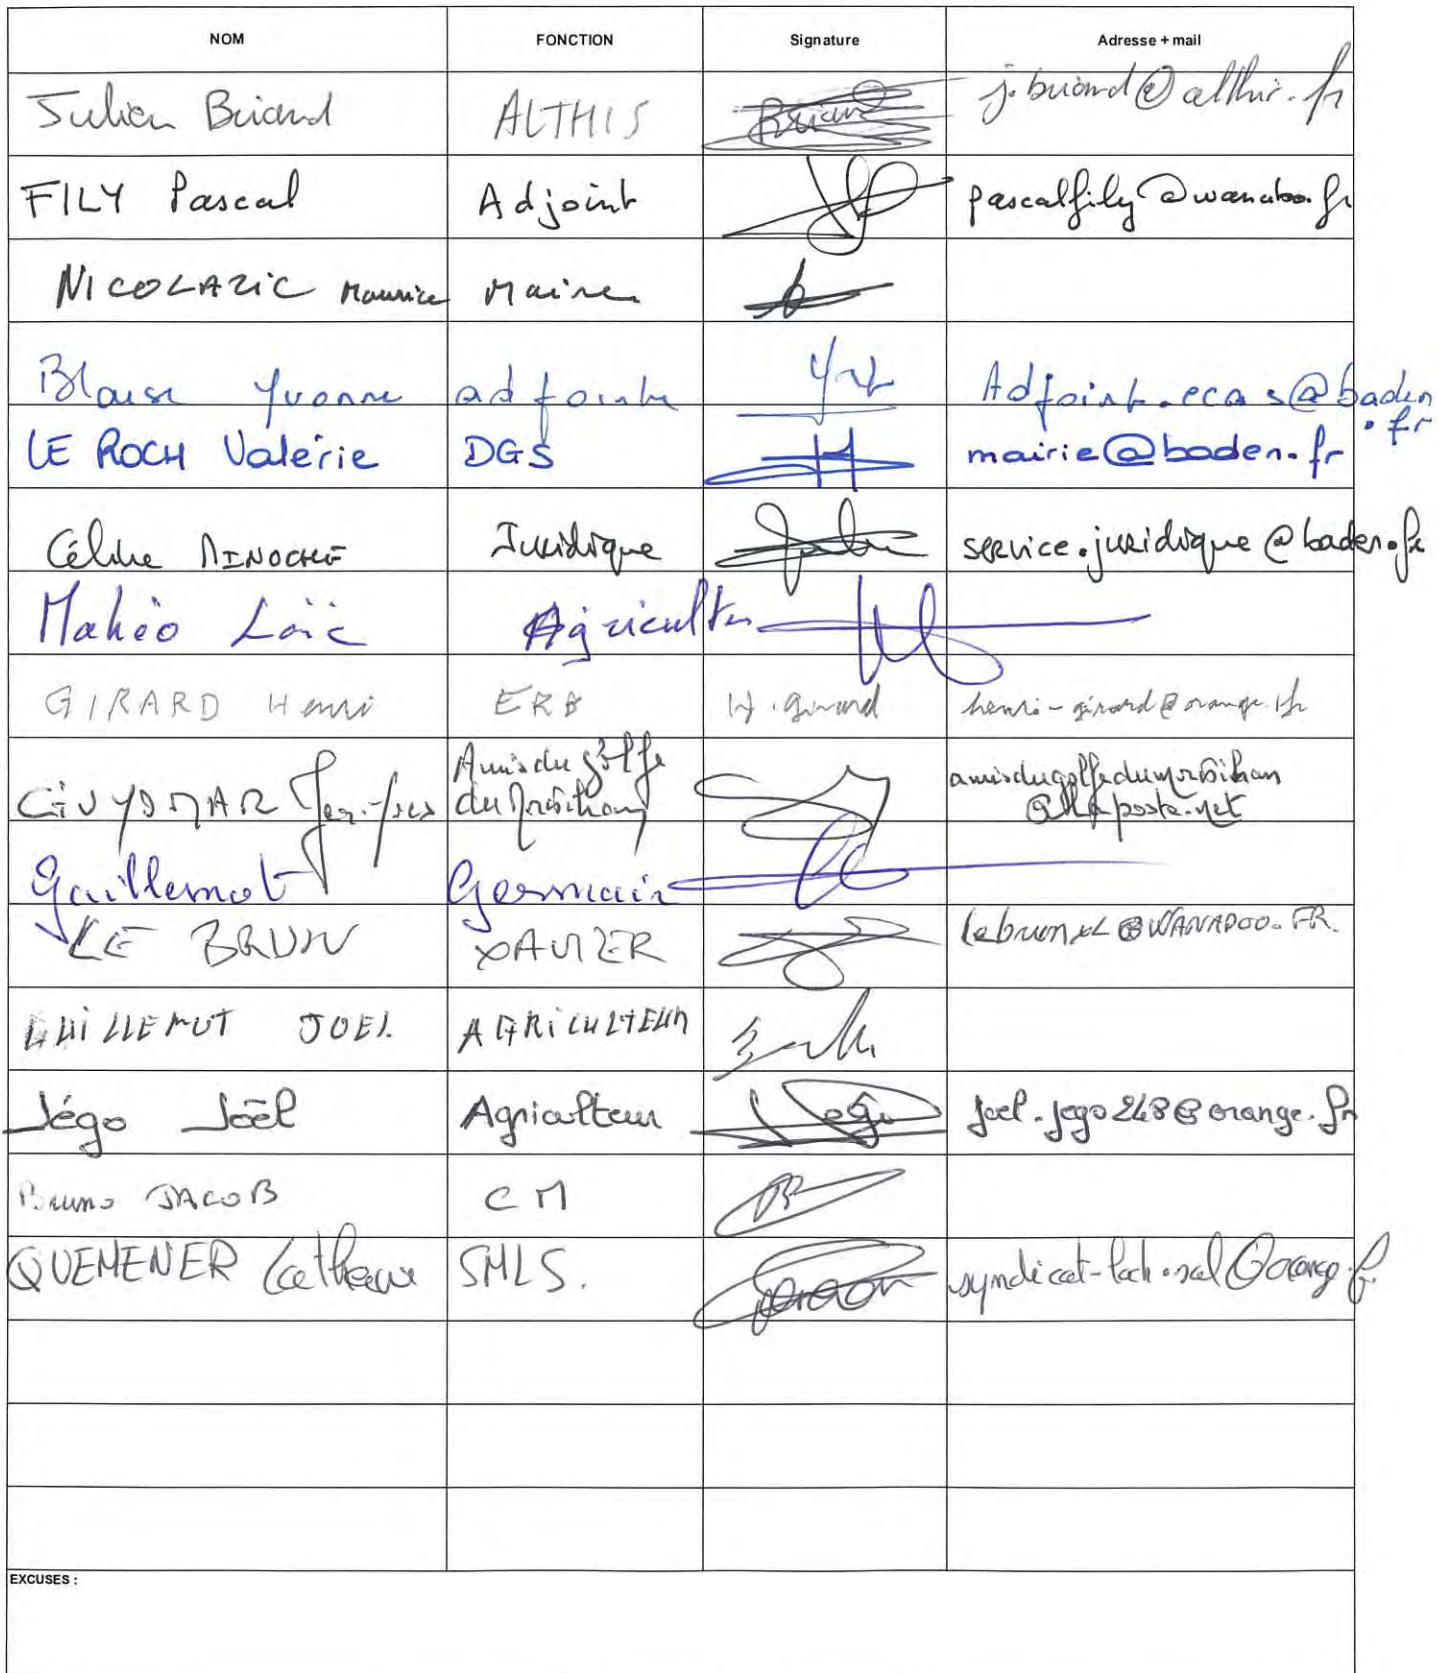 NOM FONCTION Signature Adresse + mail
Julien Briand ALTHIS Briand j.briand@althis.fr
FILY Pascal Adjoint pascalfily@wanadoo.fr
NICOLAZIC Maurice Maire
Blaise Yvonne adjointe Adjoint.ecas@baden
.fr
LE ROCH Valérie DGS mairie@baden.fr
Céline MINOCHE Juridique service.juridique@baden.fr
Mahéo Loïc Agriculteur
GIRARD Henri ERB H. Girard henri-girard@orange.fr
Amis du golfe amisdugolfedumorbihan
GUYOMAR du Morbihan @laposte.net
Guillemot Germain
LE BRUN XAVIER lebrunxl@WANADOO.FR.
GUILLEMOT JOEL AGRICULTEUR
Jégo Joël Agriculteur Jégo joel.jego248@orange.fr
Bruno JACOB CM
QUEMENER Catherine SMLS. syndicat-loch.sal@orange.fr
EXCUSES :